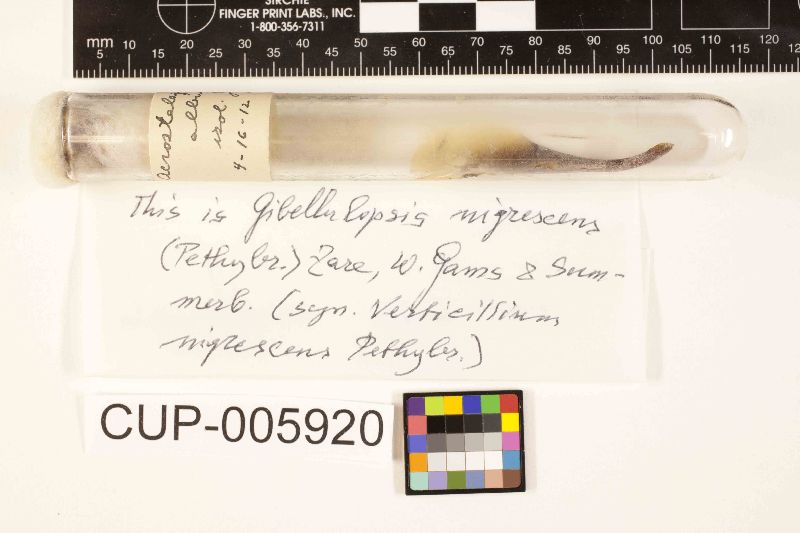 SIRCHIE
FINGER PRINT LABS., INC.
1-800-356-7311
mm 5 10 15 20 25 30 35 40 45 50 55 60 65 70 75 80 85 90 95 100 105 110 115 120
isol.
4-16-12
This is Gibellulopsis nigrescens
(Pethybr.) Zare, W. Gams & Sum-
merb. (syn. Verticillium
nigrescens Pethybr.)
CUP-005920